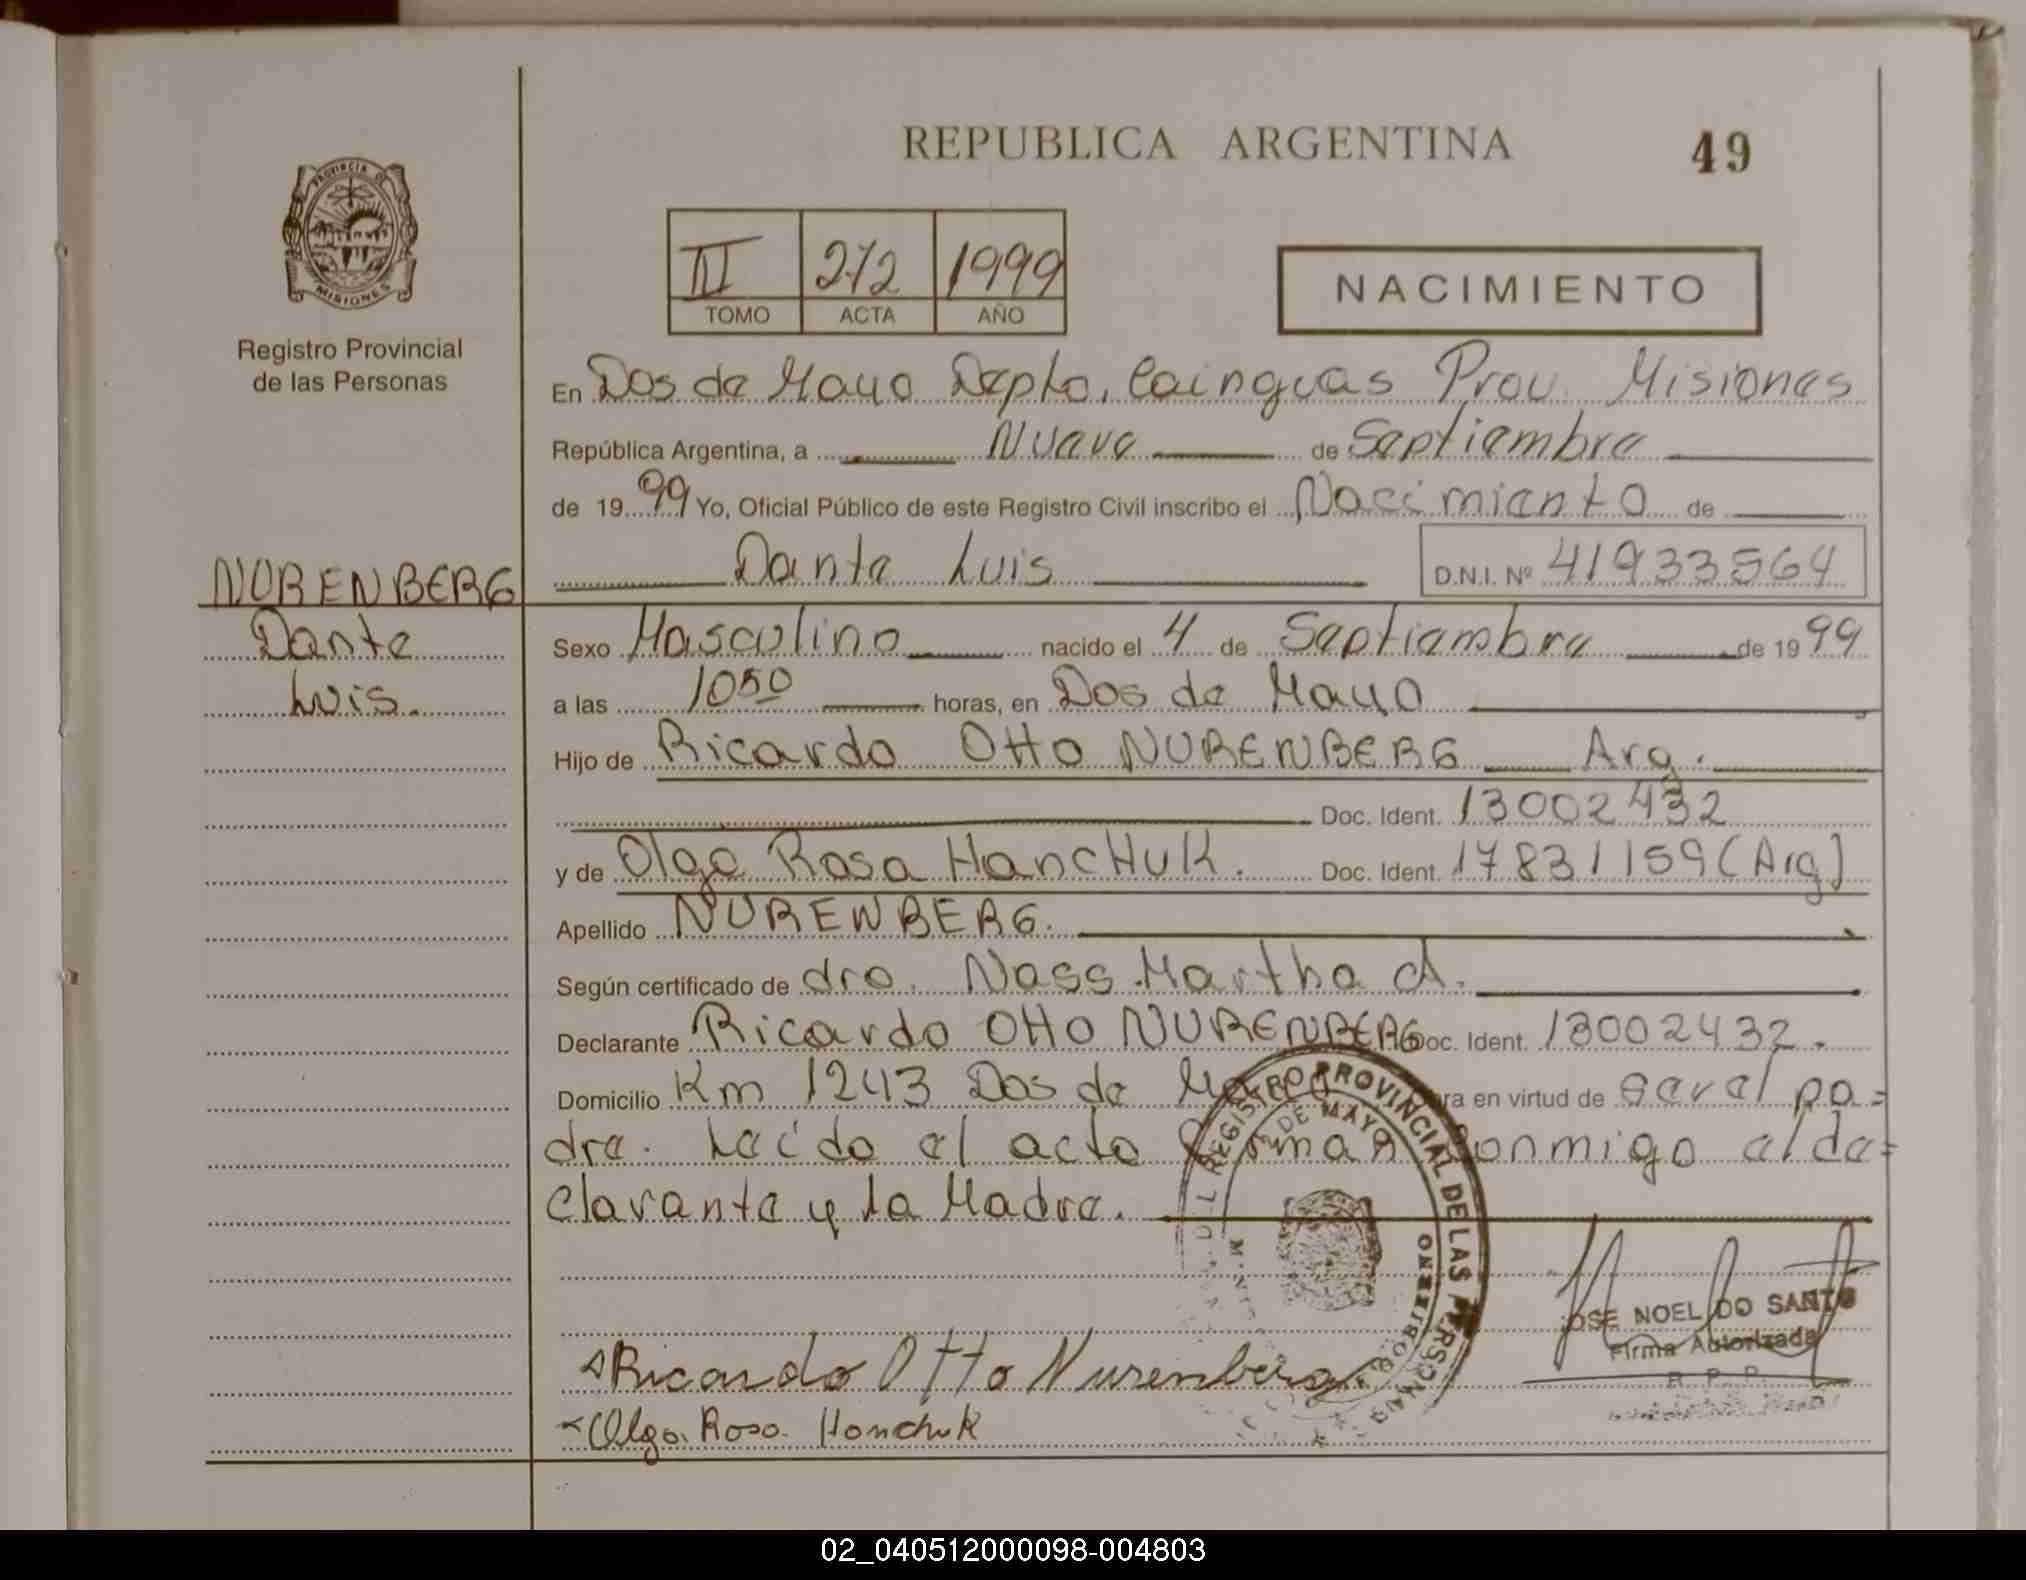 REPUBLICA ARGENTINA
49
PROVINCIA DE
MISIONES
Registro Provincial
de las Personas
III 272 1999
TOMO ACTA AÑO
NACIMIENTO
En Dos de Mayo Depto. Cainguas Prov. Misiones
República Argentina, a Nueve de Septiembre
de 19 99 Yo, Oficial Público de este Registro Civil inscribo el Nacimiento de
Dante Luis D.N.I. Nº 41933564
NURENBERG
Dante
Luis.
Sexo Masculino nacido el 4 de Septiembre de 19 99
a las 10 50 horas, en Dos de Mayo
Hijo de Ricardo Otto NURENBERG Arg.
Doc. Ident. 13002432
y de Olga Rosa HancHuk. Doc. Ident. 17831159 (Arg)
Apellido NURENBERG.
Según certificado de dra. Nass Martha A.
Declarante Ricardo Otto NURENBERG Doc. Ident. 13002432.
Domicilio Km 1243 Dos de Mayo en virtud de ser el pa=
dre. Leído el acta firman conmigo el de=
clarante y la Madre.
REGISTRO PROVINCIAL DE LAS PERSONAS
2 DE MAYO
GOBIERNO
JOSE NOEL DO SANTO
Firma Autorizada
R. P. P.
Ricardo Otto Nurenberg
Olga Rosa Honchuk
02_040512000098-004803